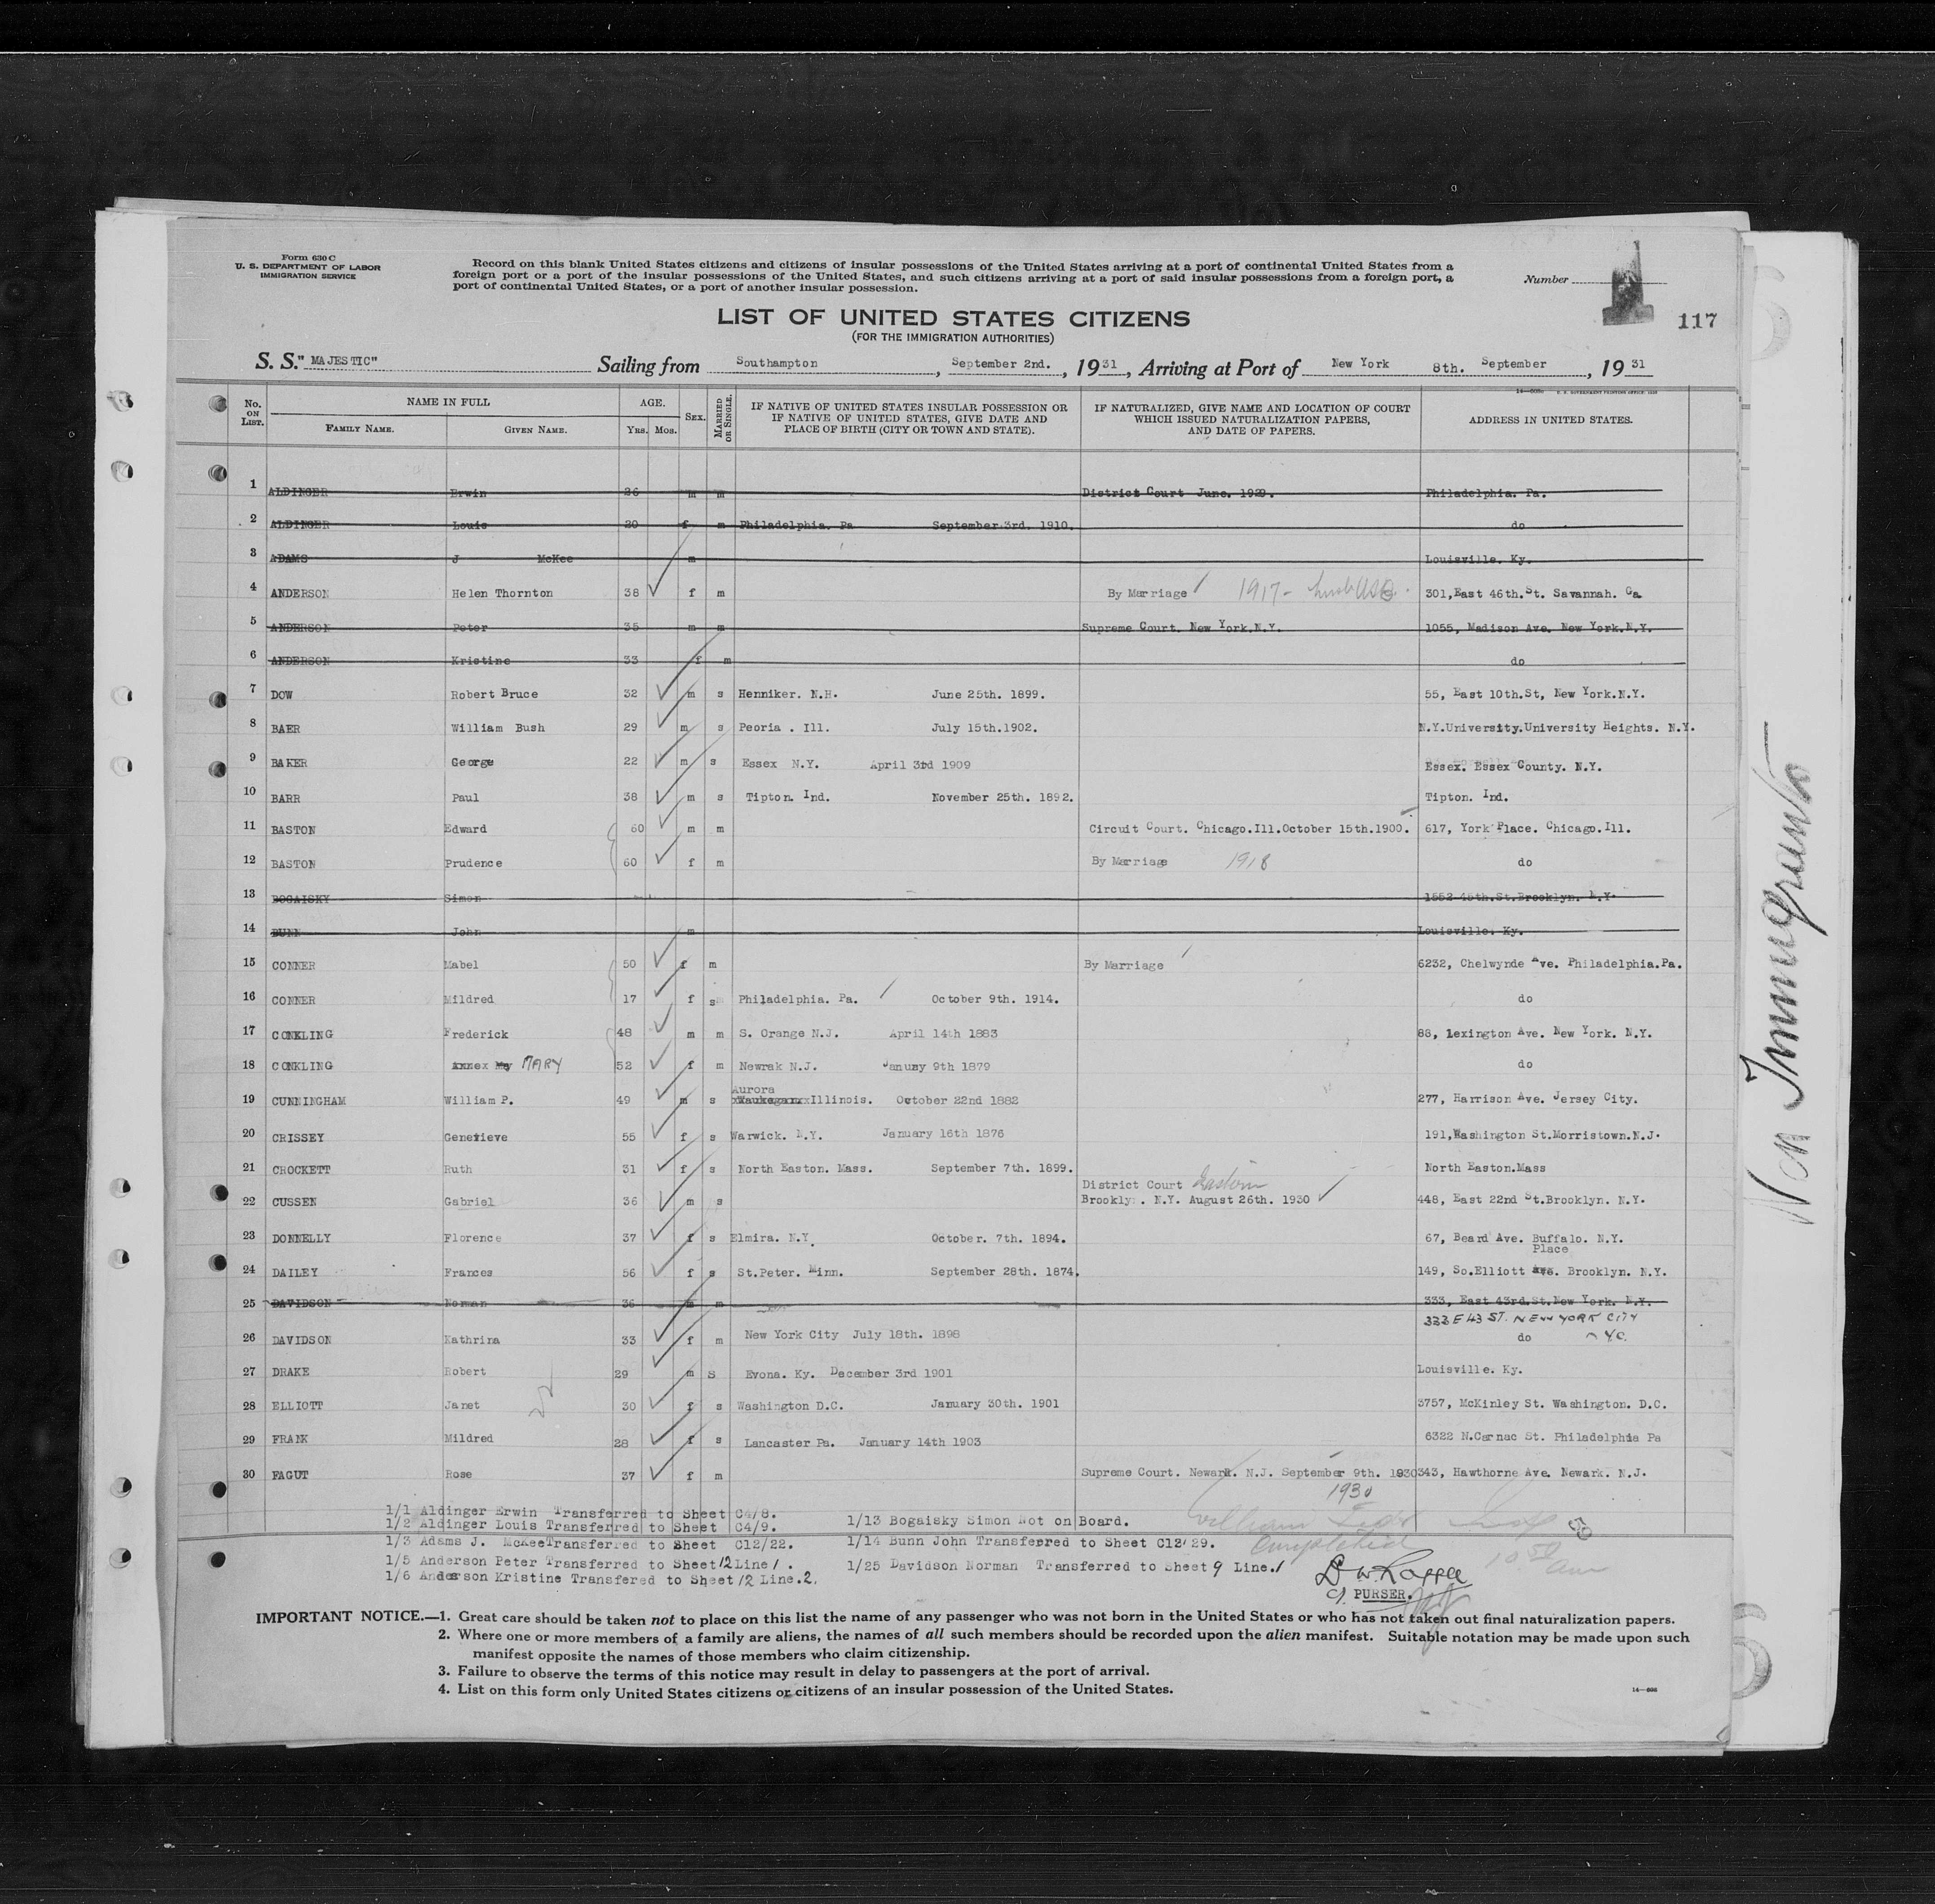 Form 630 C
U. S. DEPARTMENT OF LABOR
IMMIGRATION SERVICE
Record on this blank United States citizens and citizens of insular possessions of the United States arriving at a port of continental United States from a
foreign port or a port of the insular possessions of the United States, and such citizens arriving at a port of said insular possessions from a foreign port, a
port of continental United States, or a port of another insular possession.
Number
117
LIST OF UNITED STATES CITIZENS
(FOR THE IMMIGRATION AUTHORITIES)
S. S. "MAJESTIC" Sailing from Southampton, September 2nd., 1931, Arriving at Port of New York 8th. September, 1931
No. ON LIST. NAME IN FULL FAMILY NAME. GIVEN NAME. AGE. YRS. MOS. SEX. MARRIED OR SINGLE. IF NATIVE OF UNITED STATES INSULAR POSSESSION OR IF NATIVE OF UNITED STATES, GIVE DATE AND PLACE OF BIRTH (CITY OR TOWN AND STATE). IF NATURALIZED, GIVE NAME AND LOCATION OF COURT WHICH ISSUED NATURALIZATION PAPERS, AND DATE OF PAPERS. ADDRESS IN UNITED STATES.
1 ALDINGER Erwin 26 m m District Court June. 1929. Philadelphia. Pa.
2 ALDINGER Louis 20 f m Philadelphia. Pa September 3rd. 1910. do
3 ADAMS J McKee m Louisville. Ky.
4 ANDERSON Helen Thornton 38 f m By Marriage 1917- 301,East 46th.St. Savannah. Ga
5 ANDERSON Peter 35 m m Supreme Court. New York.N.Y. 1055, Madison Ave. New York.N.Y.
6 ANDERSON Kristine 33 f m do
7 DOW Robert Bruce 32 m s Henniker. N.H. June 25th. 1899. 55, East 10th.St, New York.N.Y.
8 BAER William Bush 29 m s Peoria . Ill. July 15th.1902. N.Y.University.University Heights. N.Y.
9 BAKER George 22 m s Essex N.Y. April 3rd 1909 Essex. Essex County. N.Y.
10 BARR Paul 38 m s Tipton. Ind. November 25th. 1892. Tipton. Ind.
11 BASTON Edward 60 m m Circuit Court. Chicago.Ill.October 15th.1900. 617, York Place. Chicago.Ill.
12 BASTON Prudence 60 f m By Marriage 1918 do
13 BOGAISKY Simon 1552 45th.St.Brooklyn. N.Y.
14 BUNN John m Louisville. Ky.
15 CONNER Mabel 50 f m By Marriage 6232, Chelwynde Ave. Philadelphia.Pa.
16 CONNER Mildred 17 f s Philadelphia. Pa. October 9th. 1914. do
17 CONKLING Frederick 48 m m S. Orange N.J. April 14th 1883 88, Lexington Ave. New York. N.Y.
18 CONKLING MARY 52 f m Newrak N.J. Januzy 9th 1879 do
19 CUNNINGHAM William P. 49 m s Aurora Waukegan Illinois. October 22nd 1882 277, Harrison Ave. Jersey City.
20 CRISSEY Genevieve 55 f s Warwick. N.Y. January 16th 1876 191,Washington St.Morristown.N.J.
21 CROCKETT Ruth 31 f s North Easton. Mass. September 7th. 1899. North Easton.Mass
District Court Eastern
22 CUSSEN Gabriel 36 m s Brooklyn. N.Y. August 26th. 1930 448, East 22nd St.Brooklyn. N.Y.
23 DONNELLY Florence 37 f s Elmira. N.Y. October. 7th. 1894. 67, Beard Ave. Buffalo. N.Y.
Place
24 DAILEY Frances 56 f s St.Peter. Minn. September 28th. 1874. 149, So.Elliott Ave. Brooklyn. N.Y.
25 DAVIDSON Norman 36 m m 333, East 43rd.St.New York. N.Y.
333 E 43 ST. NEW YORK CITY
26 DAVIDSON Kathrina 33 f m New York City July 18th. 1898 do N.Y.C.
27 DRAKE Robert 29 m S Evona. Ky. December 3rd 1901 Louisville. Ky.
28 ELLIOTT Janet 30 f s Washington D.C. January 30th. 1901 3757, McKinley St. Washington. D.C.
29 FRANK Mildred 28 f s Lancaster Pa. January 14th 1903 6322 N.Carnac St. Philadelphia Pa
30 FAGUT Rose 37 f m Supreme Court. Newark. N.J. September 9th. 1930 343, Hawthorne Ave. Newark. N.J.
1930
1/1 Aldinger Erwin Transferred to Sheet C4/8.
1/2 Aldinger Louis Transferred to Sheet C4/9.
1/3 Adams J. McKeeTransferred to Sheet C12/22.
1/5 Anderson Peter Transferred to Sheet 12 Line 1.
1/6 Anderson Kristine Transfered to Sheet 12 Line.2.
1/13 Bogaisky Simon Not on Board.
1/14 Bunn John Transferred to Sheet C12/29.
1/25 Davidson Norman Transferred to Sheet 9 Line.1
William
Completed
50
10 50 am
PURSER.
IMPORTANT NOTICE.—1. Great care should be taken not to place on this list the name of any passenger who was not born in the United States or who has not taken out final naturalization papers.
2. Where one or more members of a family are aliens, the names of all such members should be recorded upon the alien manifest. Suitable notation may be made upon such
manifest opposite the names of those members who claim citizenship.
3. Failure to observe the terms of this notice may result in delay to passengers at the port of arrival.
4. List on this form only United States citizens or citizens of an insular possession of the United States.
14—608
Non Immigrants